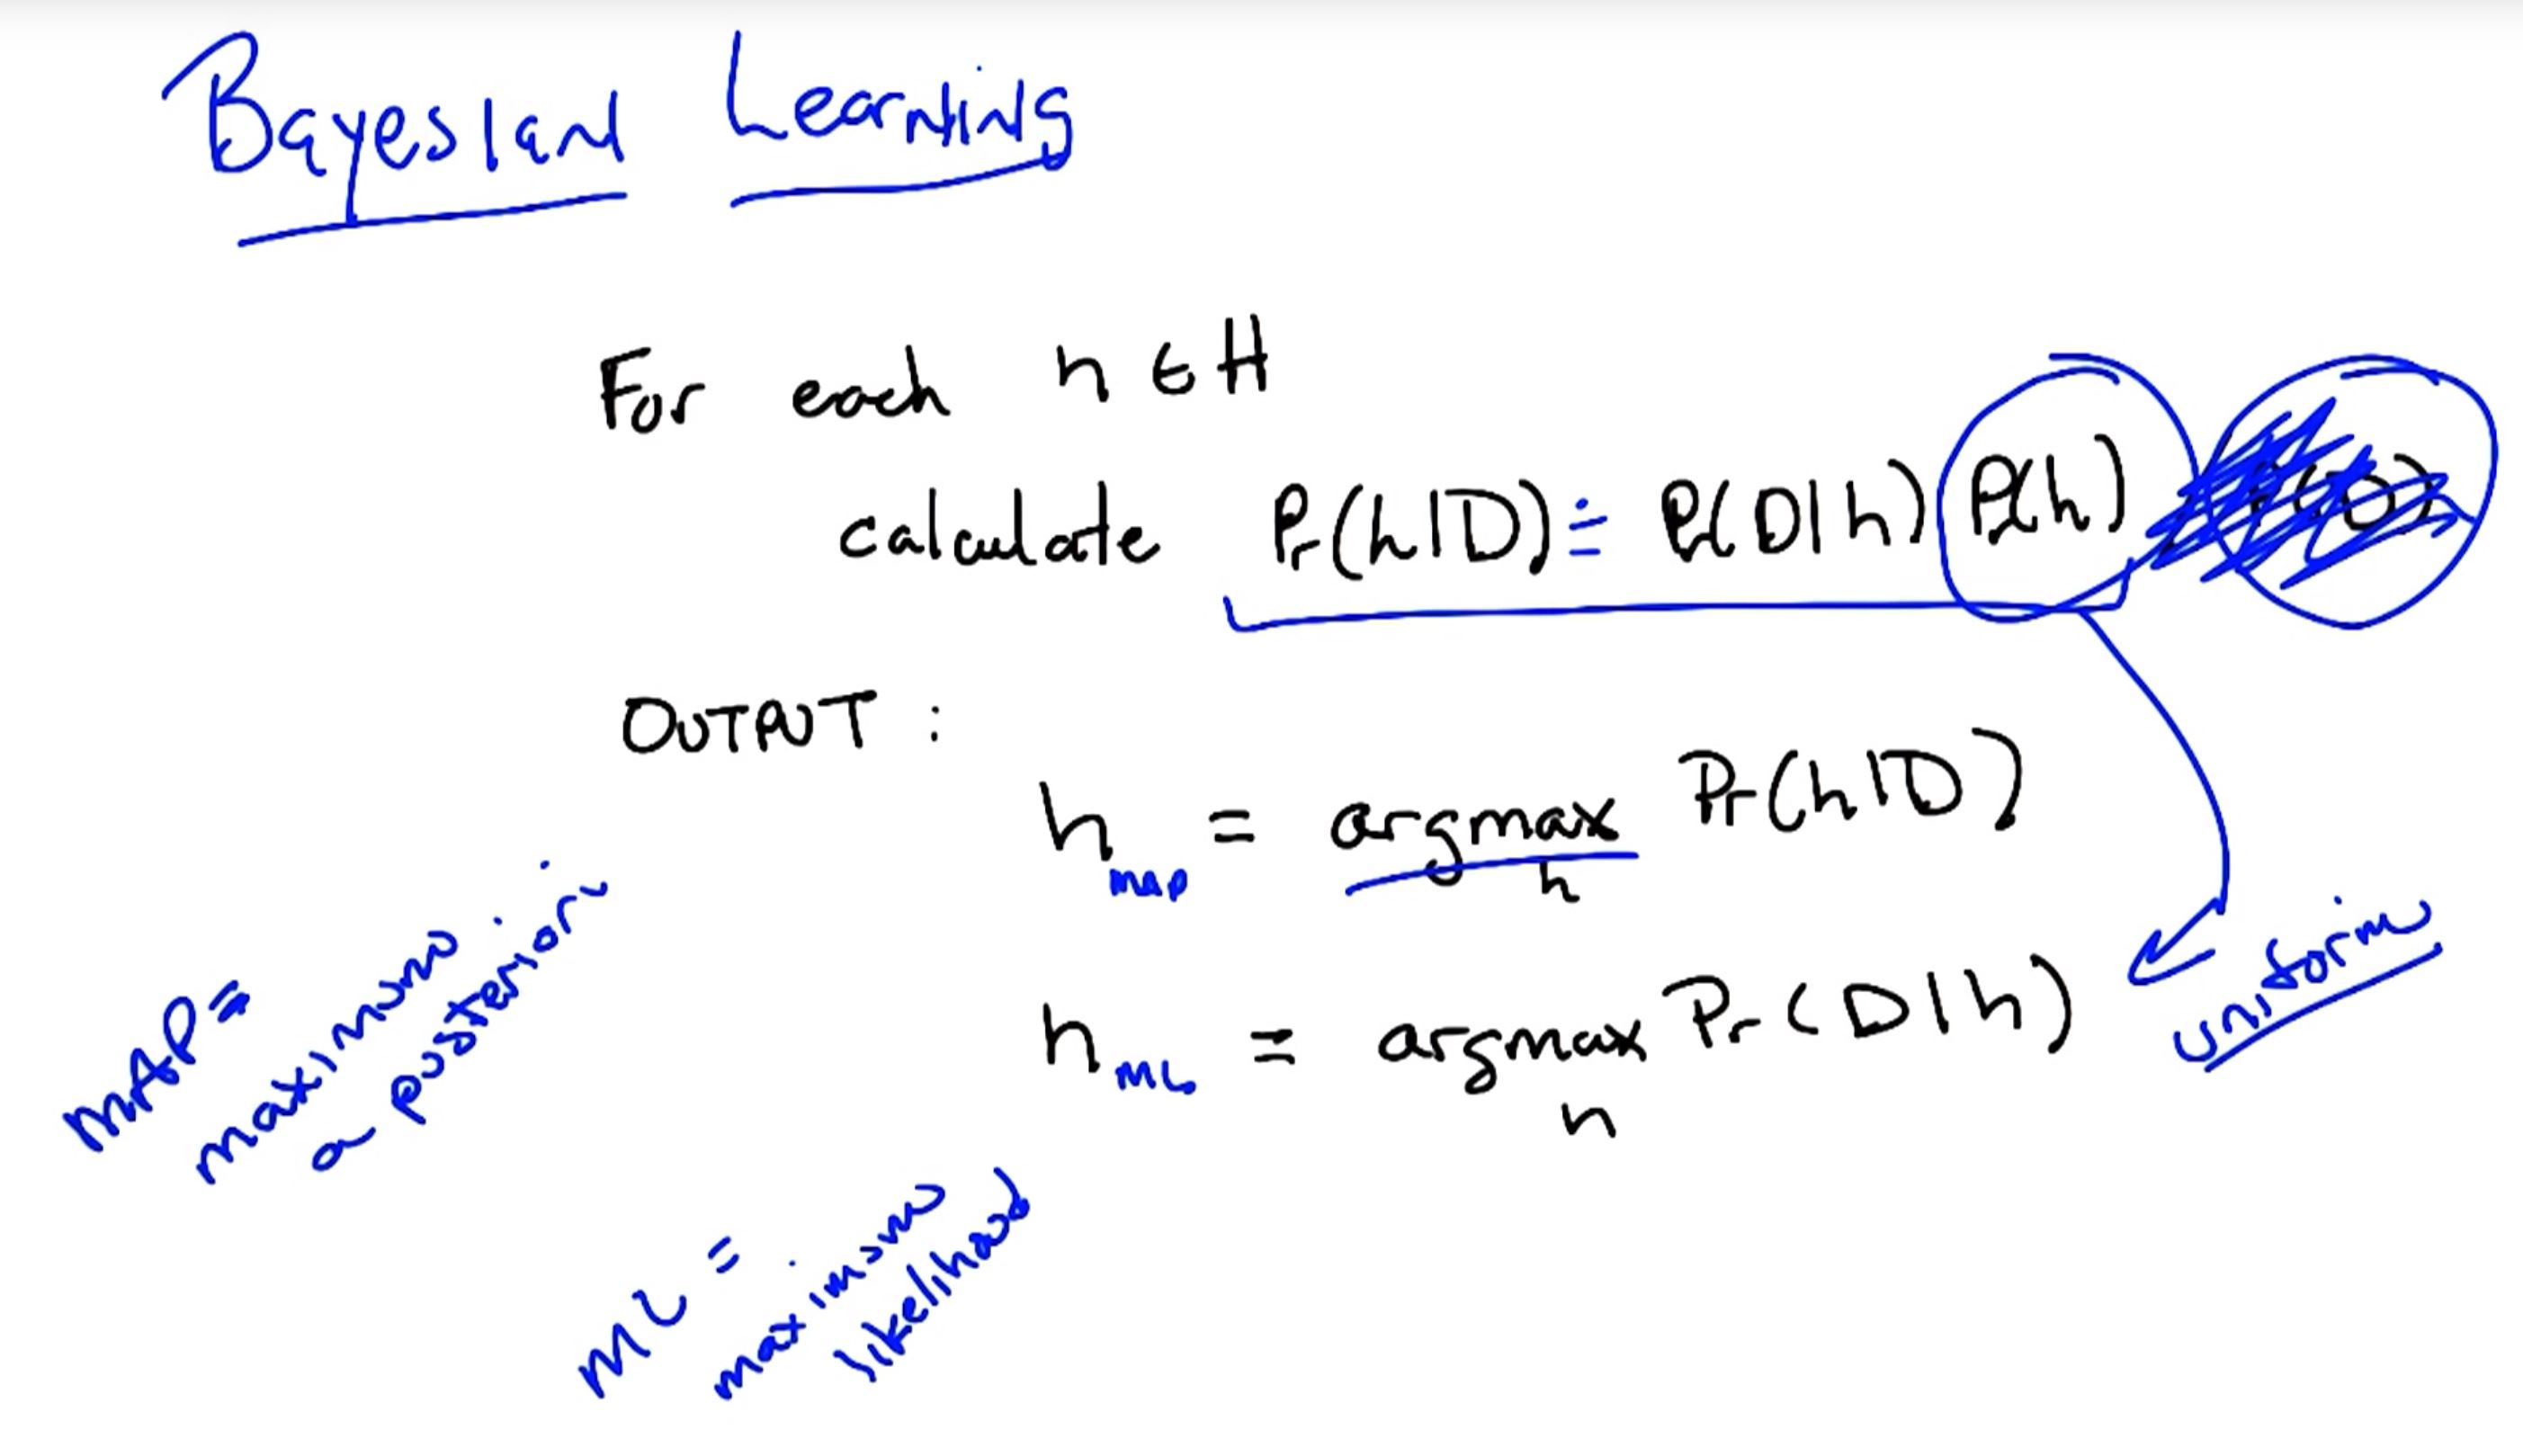 Bayesian Learning
For each h ∈ H
calculate Pr(h|D) ≐ Pr(D|h) Pr(h)
OUTPUT :
h MAP = argmax h Pr(h|D)
h ML = argmax h Pr(D|h)
uniform
MAP =
maximum
a posteriori
ML =
maximum
likelihood